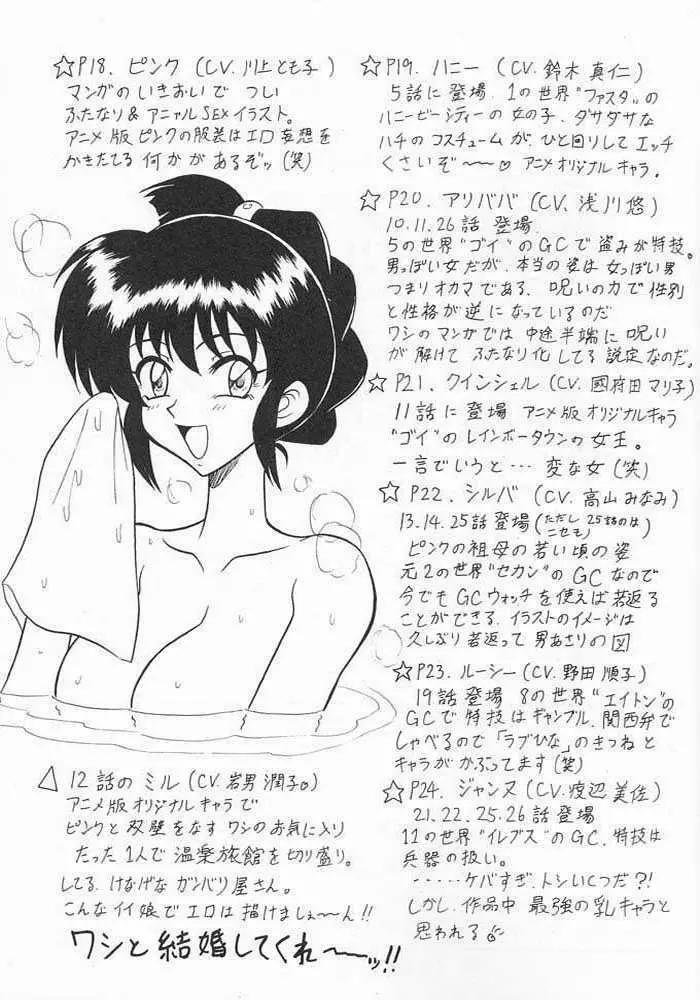 ☆P18. ピンク (CV. 川上とも子)
マンガのいきおいで つい
ふたなり&アニャルSEXイラスト。
アニメ版ピンクの服装はエロ妄想を
かきたてる 何かがあるぞッ(笑)
△12話の ミル(CV. 岩男潤子。)
アニメ版オリジナルキャラで
ピンクと双璧をなす ワシのお気に入り
たった1人で 温楽旅館を切り盛り。
してる、けなげな ガンバリ屋さん。
こんなイイ娘で エロは描けましぇ〜ん!!
ワシと結婚してくれ〜〜ッ!!
☆P19. ハニー (CV. 鈴木 真仁)
5話に登場. 1の世界"ファスタ"の
ハニービーシティーの女の子. ダサダサな
ハチのコスチュームが、ひと回りしてエッチ
くさいぞ〜〜♡ アニメオリジナルキャラ.
☆P20. アリババ (CV. 浅川 悠)
10.11.26話 登場.
5の世界"ゴイ"のGCで盗みが特技。
男っぽい女だが、本当の姿は女っぽい男
つまりオカマである. 呪いの力で性別
と性格が逆になっているのだ
ワシのマンガでは 中途半端に呪い
が解けて ふたなり化してる設定なのだ。
☆P21. クインシェル (CV. 國府田マリ子)
11話に登場 アニメ版オリジナルキャラ
"ゴイ"のレインボータウンの女王。
一言でいうと… 変な女(笑)
☆P22. シルバ (CV. 高山みなみ)
13.14.25話登場(ただし25話のはニセモノ)
ピンクの祖母の若い頃の姿
元2の世界"セカン"のGCなので
今でもGCウォッチを使えば若返る
ことができる. イラストのイメージは
久しぶり若返って 男あさりの図
☆P23. ルーシー (CV. 野田 順子)
19話登場 8の世界"エイトン"の
GCで特技はギャンブル. 関西弁で
しゃべるので「ラブひな」のきつねと
キャラがかぶってます(笑)
☆P24. ジャンヌ (CV. 渡辺 美佐)
21.22.25.26話登場
11の世界"イレブス"のGC. 特技は
兵器の扱い。
‥‥‥ケバすぎ. トシいくつだ?!
しかし. 作品中 最強の乳キャラと
思われる